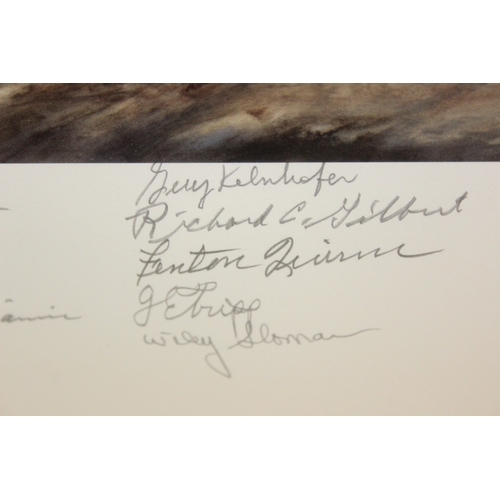 Guy Kelnhofer
Richard C. Gilbert
Fenton Quinn
J E Tripp
Wiley Sloman